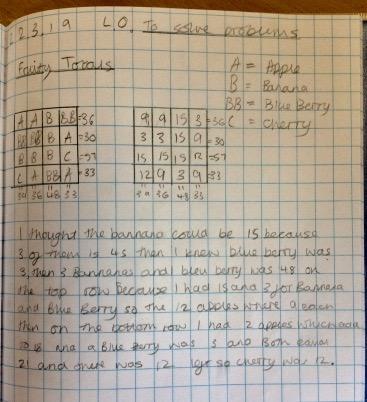 12.3.19 L.O. To solve problems
Fruity Totals
A = Apple
B = Banana
BB = Blue Berry
C = Cherry
A A B BB =36
BB BB B A =30
B B B C =57
C A BB A =33
39 36 48 33
9 9 15 3 =36
3 3 15 9 =30
15 15 15 12 =57
12 9 3 9 =33
39 36 48 33
I thought the bannana could be 15 because
3 of them is 45 then I knew blue berry was
3, then 3 Bannanas and 1 bleu berry was 48 on
the top row because I had 15 and 3 for Bannana
and Blue Berry so the 12 apples where 9 each
then on the bottom row I had 2 apples which add
to 18 and a Blue Berry was 3 and Both equal
21 and there was 12 left so cherry was 12.